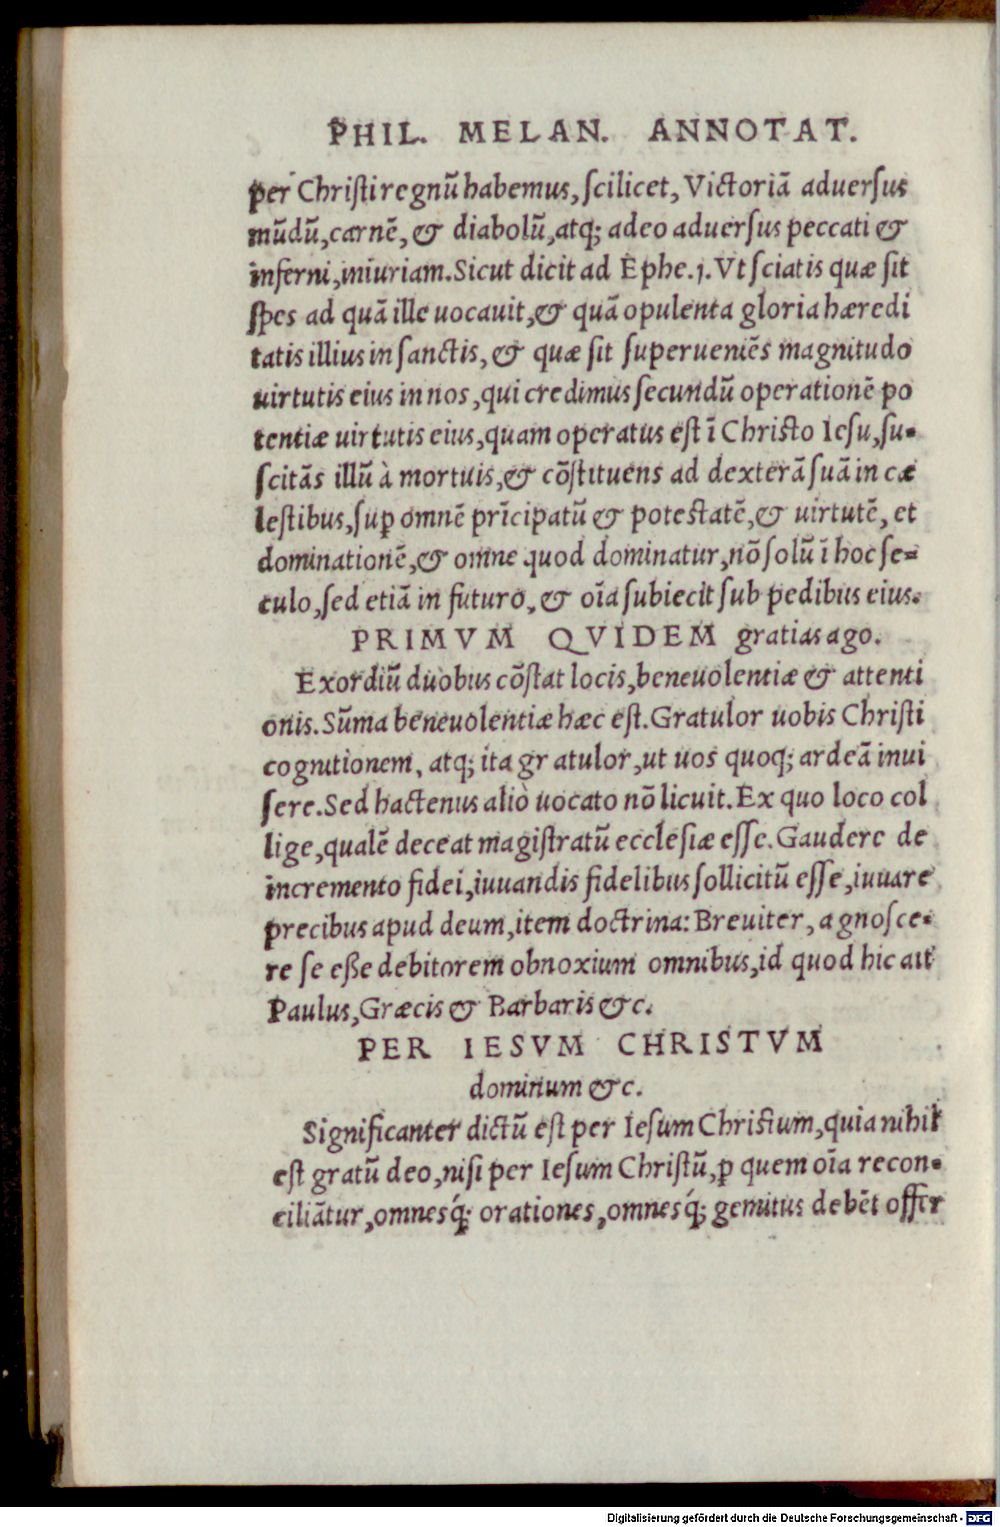 PHIL. MELAN. ANNOTAT.
per Christi regnũ habemus, ſcilicet, Victoriã aduerſus
mũdũ, carnẽ, & diabolũ, atq; adeo aduerſus peccati &
inferni, iniuriam. Sicut dicit ad Ephe. 1. Vt ſciatis quæ ſit
ſpes ad quã ille uocauit, & quã opulenta gloria hæredi
tatis illius in ſanctis, & quæ ſit ſuperueniẽs magnitudo
uirtutis eius in nos, qui credimus ſecundũ operationẽ po
tentiæ uirtutis eius, quam operatus eſt ĩ Chriſto Ieſu, ſu-
ſcitãs illũ à mortuis, & cõſtituens ad dexterã ſuã in cæ
leſtibus, ſuꝑ omnẽ prĩcipatũ & poteſtatẽ, & uirtutẽ, et
dominationẽ, & omne quod dominatur, nõ ſolũ ĩ hoc ſe-
culo, ſed etiã in futuro, & oĩa ſubiecit ſub pedibus eius.
PRIMVM QVIDEM gratias ago.
Exordiũ duobus cõſtat locis, beneuolentiæ & attenti
onis. Sũma beneuolentiæ hæc eſt. Gratulor uobis Chriſti
cognitionem, atq; ita gratulor, ut uos quoq; ardeã inui
ſere. Sed hactenus aliò uocato nõ licuit. Ex quo loco col
lige, qualẽ deceat magiſtratũ eccleſiæ eſſe. Gaudere de
incremento fidei, iuuandis fidelibus ſollicitũ eſſe, iuuare
precibus apud deum, item doctrina: Breuiter, agnoſce-
re ſe eße debitorem obnoxium omnibus, id quod hic ait
Paulus, Græcis & Barbaris &c.
PER IESVM CHRISTVM
dominum &c.
Significanter dictũ eſt per Ieſum Chriſtum, quia nihil
eſt gratũ deo, niſi per Ieſum Chriſtũ, ꝑ quem oĩa recon-
ciliãtur, omnesq́; orationes, omnesq́; gemitus debẽt offer
Digitalisierung gefördert durch die Deutsche Forschungsgemeinschaft - DFG